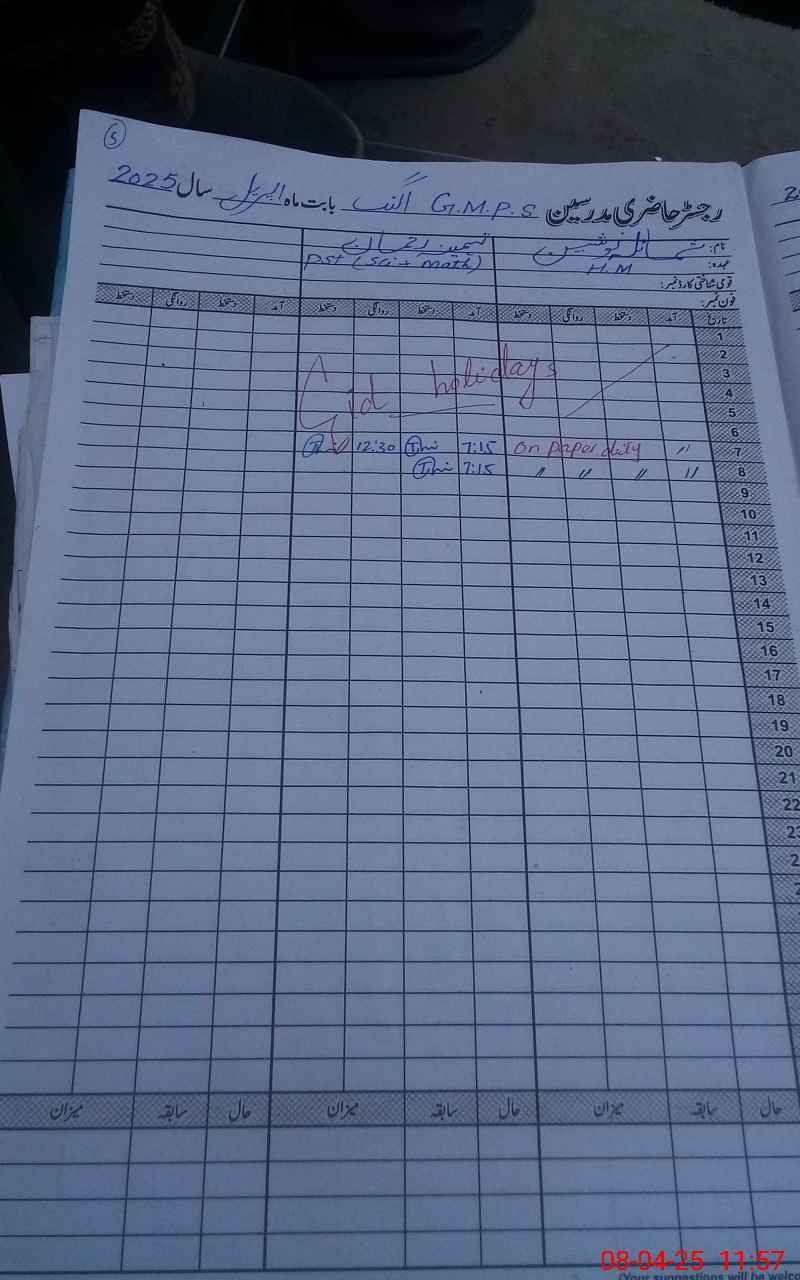 5
رجسٹر حاضری مدرسین G.M.P.S بابت ماہ اپریل سال 2025
نام:
عہدہ: H.M PST (Sci + Math)
قومی شناختی کارڈ نمبر:
فون نمبر:
تاریخ آمد دستخط روانگی دستخط آمد دستخط روانگی دستخط آمد دستخط روانگی دستخط
1
2
3 Eid holidays
4
5
6
7 〃 On paper duty 7:15 12:30
8 〃 〃 〃 〃 7:15
9
10
11
12
13
14
15
16
17
18
19
20
21
22
23
2
2
حال سابقہ میزان حال سابقہ میزان حال سابقہ میزان
08-04-25 11:57
(Your suggestions will be welco